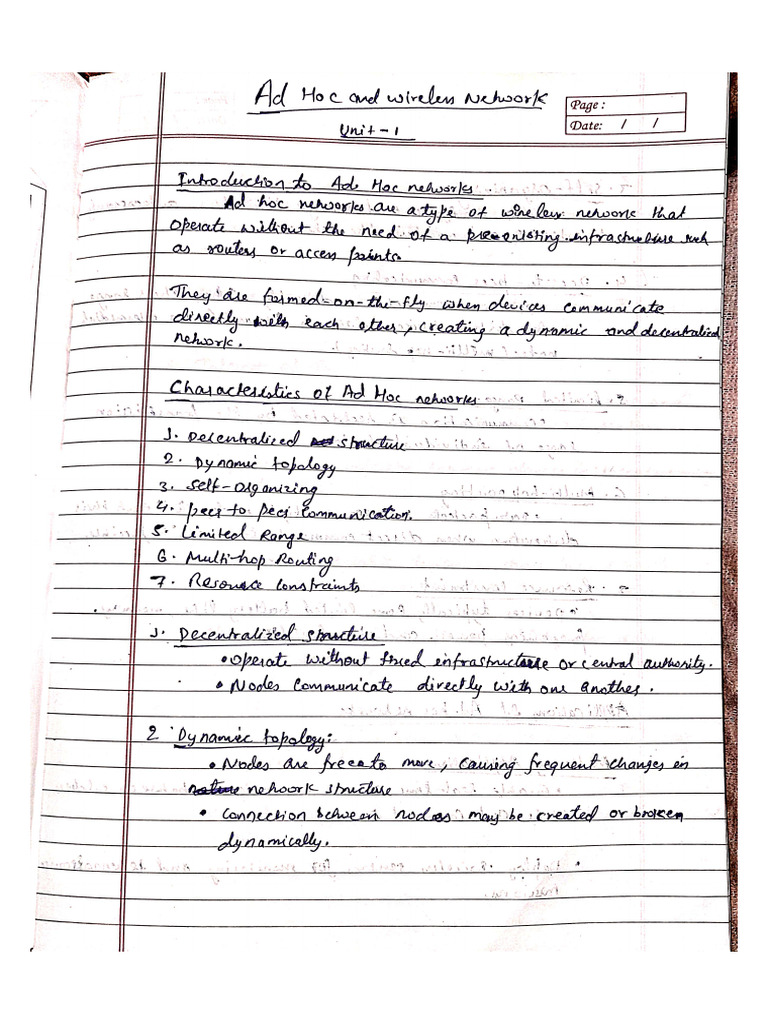 Ad Hoc and wireless Network
Page :
Unit - 1
Date: / /
Introduction to Ad Hoc networks
Ad hoc networks are a type of wireless network that
operate without the need of a pre-existing infrastructure such
as routers or access points.
They are formed-on-the-fly when devices communicate
directly with each other, creating a dynamic and decentralized
network.
Characteristics of Ad Hoc networks
1. Decentralized structure
2. Dynamic topology
3. Self-organizing
4. peer to peer communication.
5. Limited Range
6. Multi-hop Routing
7. Resource constraints
1. Decentralized structure
• Operate without fixed infrastructure or central authority.
• Nodes communicate directly with one another.
2 Dynamic topology:
• Nodes are free to move, causing frequent changes in
network structure
• Connection between nodes may be created or broken
dynamically.